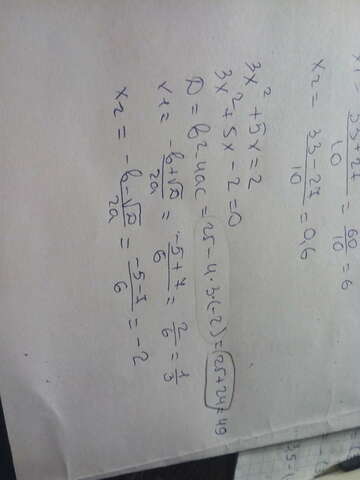 x1 = 33+27/10 = 60/10 = 6
x2 = 33-27/10 = 0,6
3x² + 5x = 2
3x² + 5x - 2 = 0
D = b² - 4ac = 25 - 4·3·(-2) = 25+24 = 49
x1 = -b+√D/2a = -5+7/6 = 2/6 = 1/3
x2 = -b-√D/2a = -5-7/6 = -2